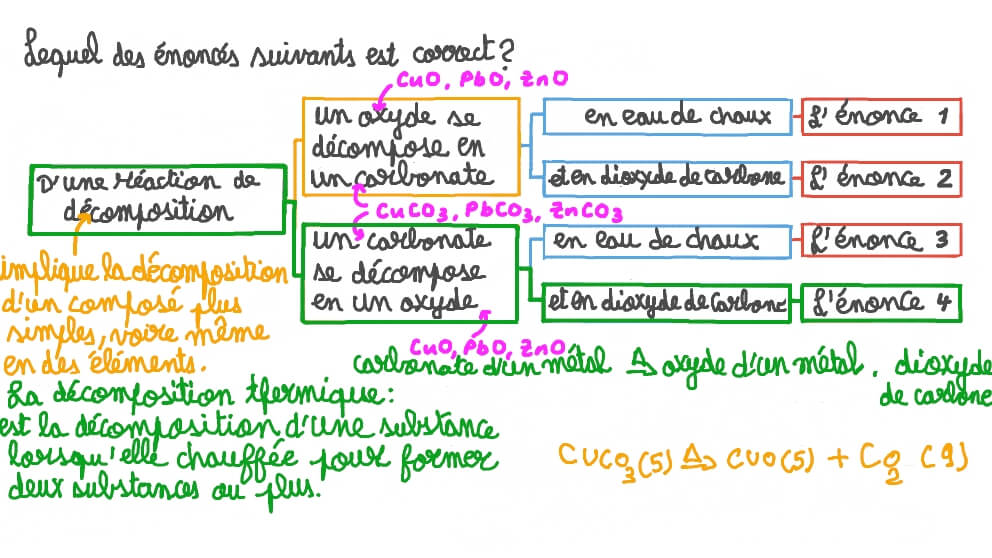 Lequel des énoncés suivants est correct?
CuO, PbO, ZnO
un oxyde se
décompose en
un carbonate
en eau de chaux
L'énonce 1
et en dioxyde de carbone
L'énonce 2
D'une réaction de
décomposition
CuCO3, PbCO3, ZnCO3
un carbonate
se décompose
en un oxyde
en eau de chaux
L'énonce 3
et en dioxyde de carbone
L'énonce 4
implique la décomposition
d'un composé plus
simples, voire même
en des éléments.
CuO, PbO, ZnO
carbonate d'un métal Δ oxyde d'un métal. dioxyde
de carbone
La décomposition thermique:
est la décomposition d'une substance
lorsqu'elle chauffée pour former
deux substances ou plus.
CUCO3(S) Δ CUO(S) + CO2 (g)